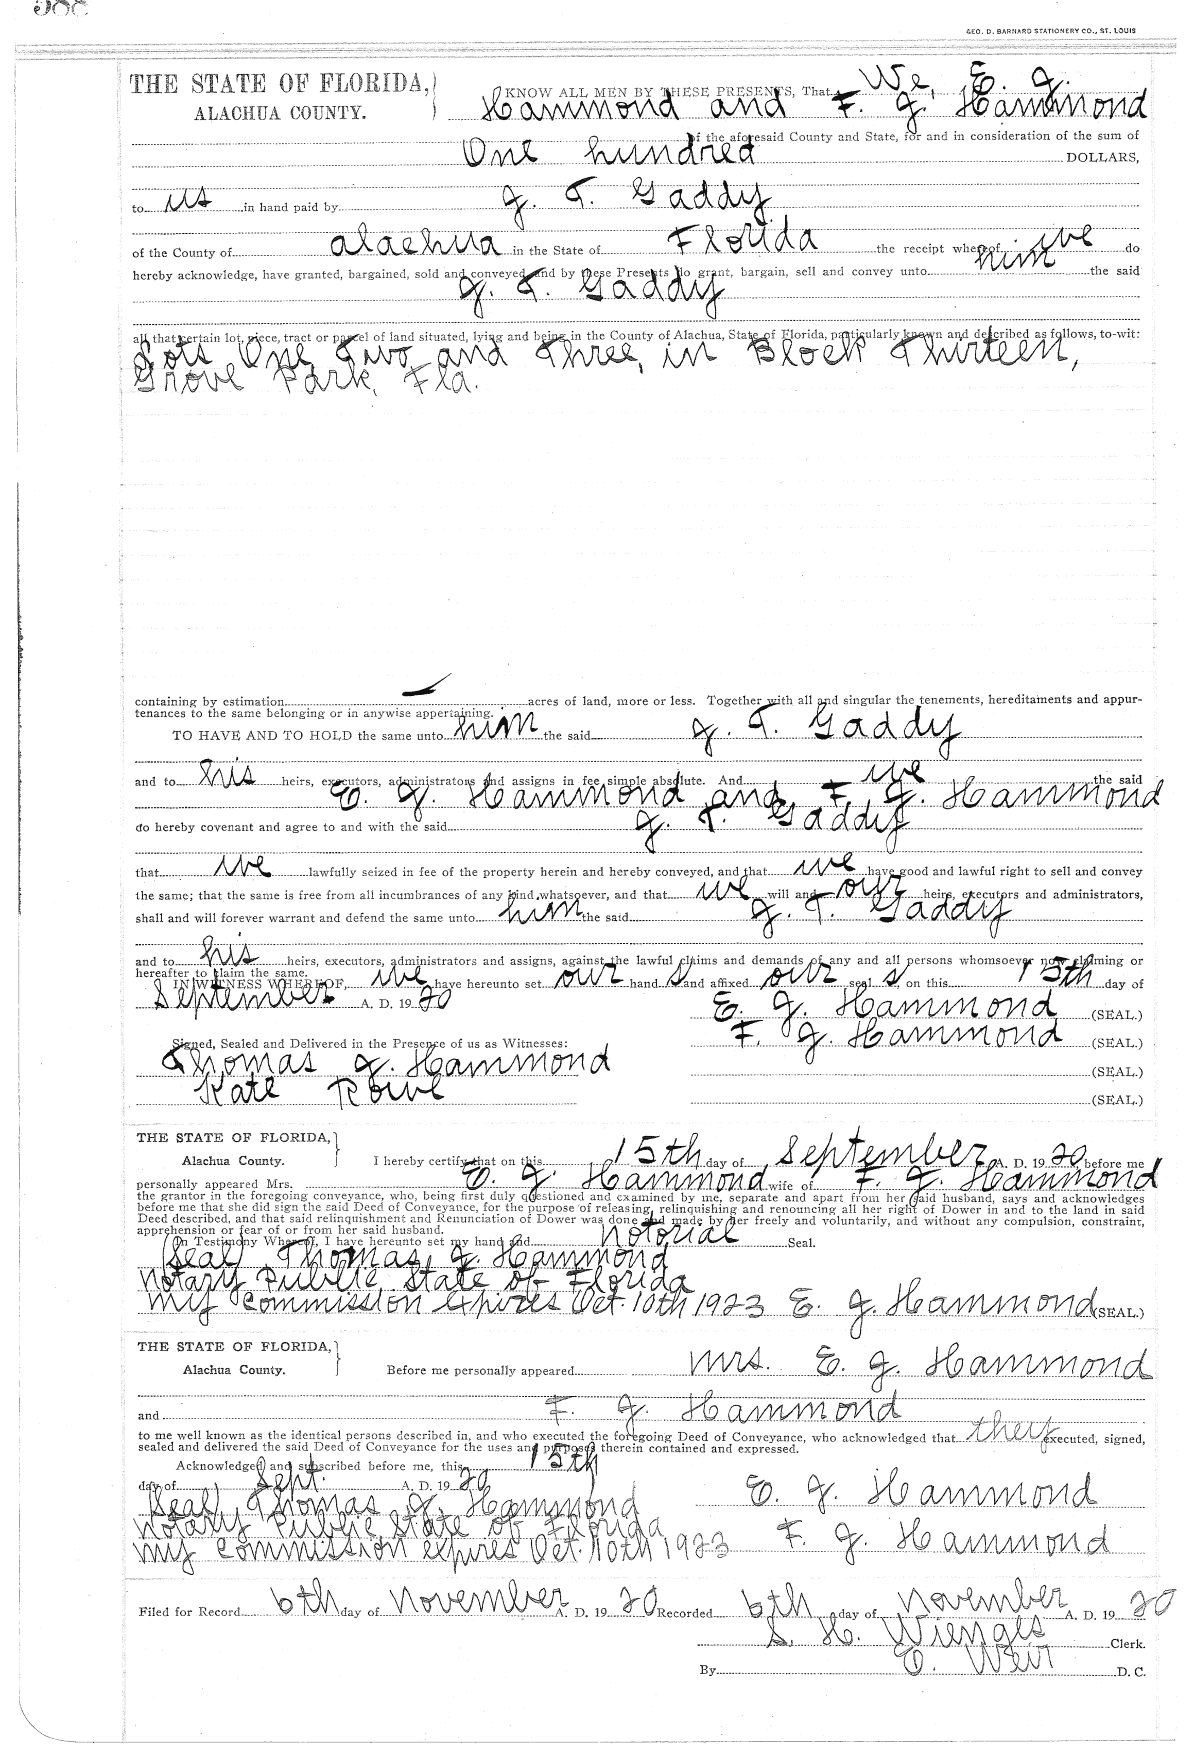 588
GEO. D. BARNARD STATIONERY CO., ST. LOUIS
THE STATE OF FLORIDA,
ALACHUA COUNTY.
KNOW ALL MEN BY THESE PRESENTS, That We, E. J.
Hammond and F. J. Hammond
of the aforesaid County and State, for and in consideration of the sum of
One hundred DOLLARS,
to us in hand paid by J. T. Gaddy
of the County of Alachua in the State of Florida the receipt whereof we do
hereby acknowledge, have granted, bargained, sold and conveyed and by these Presents do grant, bargain, sell and convey unto him the said
J. T. Gaddy
all that certain lot, piece, tract or parcel of land situated, lying and being in the County of Alachua, State of Florida, particularly known and described as follows, to-wit:
Lots One Two and Three, in Block Thirteen,
Grove Park, Fla.
containing by estimation acres of land, more or less. Together with all and singular the tenements, hereditaments and appur-
tenances to the same belonging or in anywise appertaining.
TO HAVE AND TO HOLD the same unto him the said J. T. Gaddy
and to his heirs, executors, administrators and assigns in fee simple absolute. And we the said
E. J. Hammond and, F. J. Hammond
do hereby covenant and agree to and with the said J. T. Gaddy
that we lawfully seized in fee of the property herein and hereby conveyed, and that we have good and lawful right to sell and convey
the same; that the same is free from all incumbrances of any kind whatsoever, and that we will and our heirs, executors and administrators,
shall and will forever warrant and defend the same unto him the said J. T. Gaddy
and to his heirs, executors, administrators and assigns, against the lawful claims and demands of any and all persons whomsoever now claiming or
hereafter to claim the same.
IN WITNESS WHEREOF, we have hereunto set our hand s and affixed our seal s, on this 15th day of
September A. D. 1920
E. J. Hammond (SEAL.)
F. J. Hammond (SEAL.)
Signed, Sealed and Delivered in the Presence of us as Witnesses:
Thomas J. Hammond (SEAL.)
Kate (SEAL.)
THE STATE OF FLORIDA,
Alachua County.
I hereby certify that on this 15th day of September A. D. 1920 before me
personally appeared Mrs. E. J. Hammond wife of F. J. Hammond
the grantor in the foregoing conveyance, who, being first duly questioned and examined by me, separate and apart from her said husband, says and acknowledges
before me that she did sign the said Deed of Conveyance, for the purpose of releasing, relinquishing and renouncing all her right of Dower in and to the land in said
Deed described, and that said relinquishment and Renunciation of Dower was done and made by her freely and voluntarily, and without any compulsion, constraint,
apprehension or fear of or from her said husband.
In Testimony Whereof, I have hereunto set my hand and notorial Seal.
(Seal) Thomas J. Hammond
Notary Public State of Florida
My Commission Expires Oct. 10th 1923 E. J. Hammond (SEAL.)
THE STATE OF FLORIDA,
Alachua County.
Before me personally appeared Mrs. E. J. Hammond
and F. J. Hammond
to me well known as the identical persons described in, and who executed the foregoing Deed of Conveyance, who acknowledged that they executed, signed,
sealed and delivered the said Deed of Conveyance for the uses and purposes therein contained and expressed.
Acknowledged and subscribed before me, this 15th
day of Sept. A. D. 1920
(Seal) Thomas J. Hammond E. J. Hammond
Notary Public State of Florida
My Commission expires Oct. 10th 1923 F. J. Hammond
Filed for Record 6th day of November A. D. 1920 Recorded 6th day of November A. D. 1920
S. H. Wienges Clerk.
By E. Weir D. C.